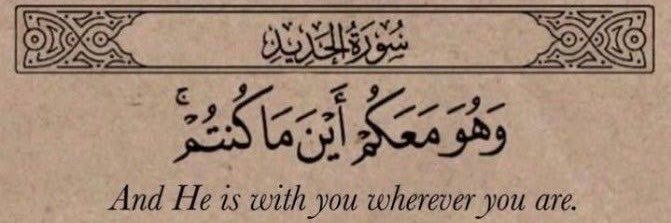 سُورَةُ الحَدِيدِ
وَهُوَ مَعَكُمْ أَيْنَ مَا كُنتُمْ ۚ
And He is with you wherever you are.